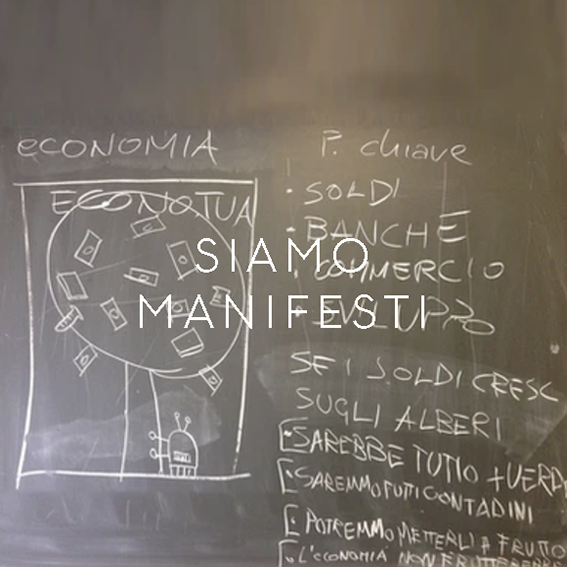 ECONOMIA
ECONOTUA
P. chiave
• SOLDI
• BANCHE
• COMMERCIO
• SVILUPPO
SE I SOLDI CRESC
SUGLI ALBERI
SAREBBE TUTTO +VERD
SAREMMO TUTTI CONTADINI
POTREMMO METTERLI A FRUTTO
L'ECONOMIA NON
SIAMO
MANIFESTI